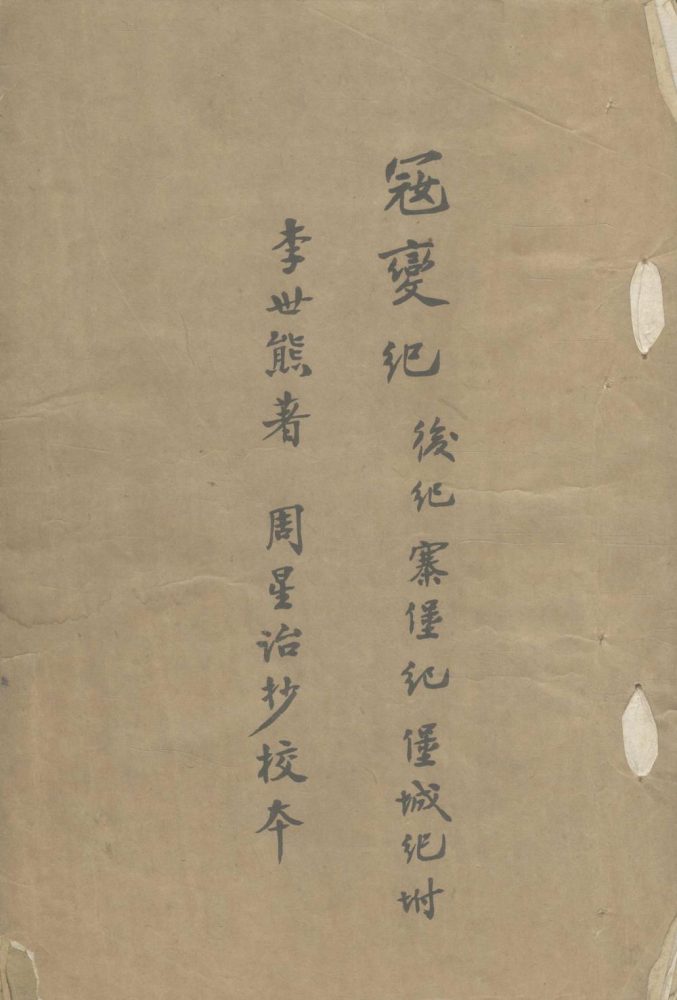 寇變紀 後紀 寨堡紀 堡城紀坿
李世熊著 周星诒抄校本